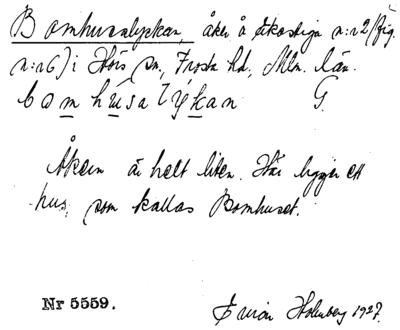 Bomhusalyckan, åker å Ekastiga n:r 2 (fig.
n:r 6) i Hörs sn, Frosta hd, Mlm. län.
bomhúsalýkan G.
Åkern är helt liten. Här ligger ett
hus, som kallas Bomhuset.
Nr 5559.
Holmberg 1927.